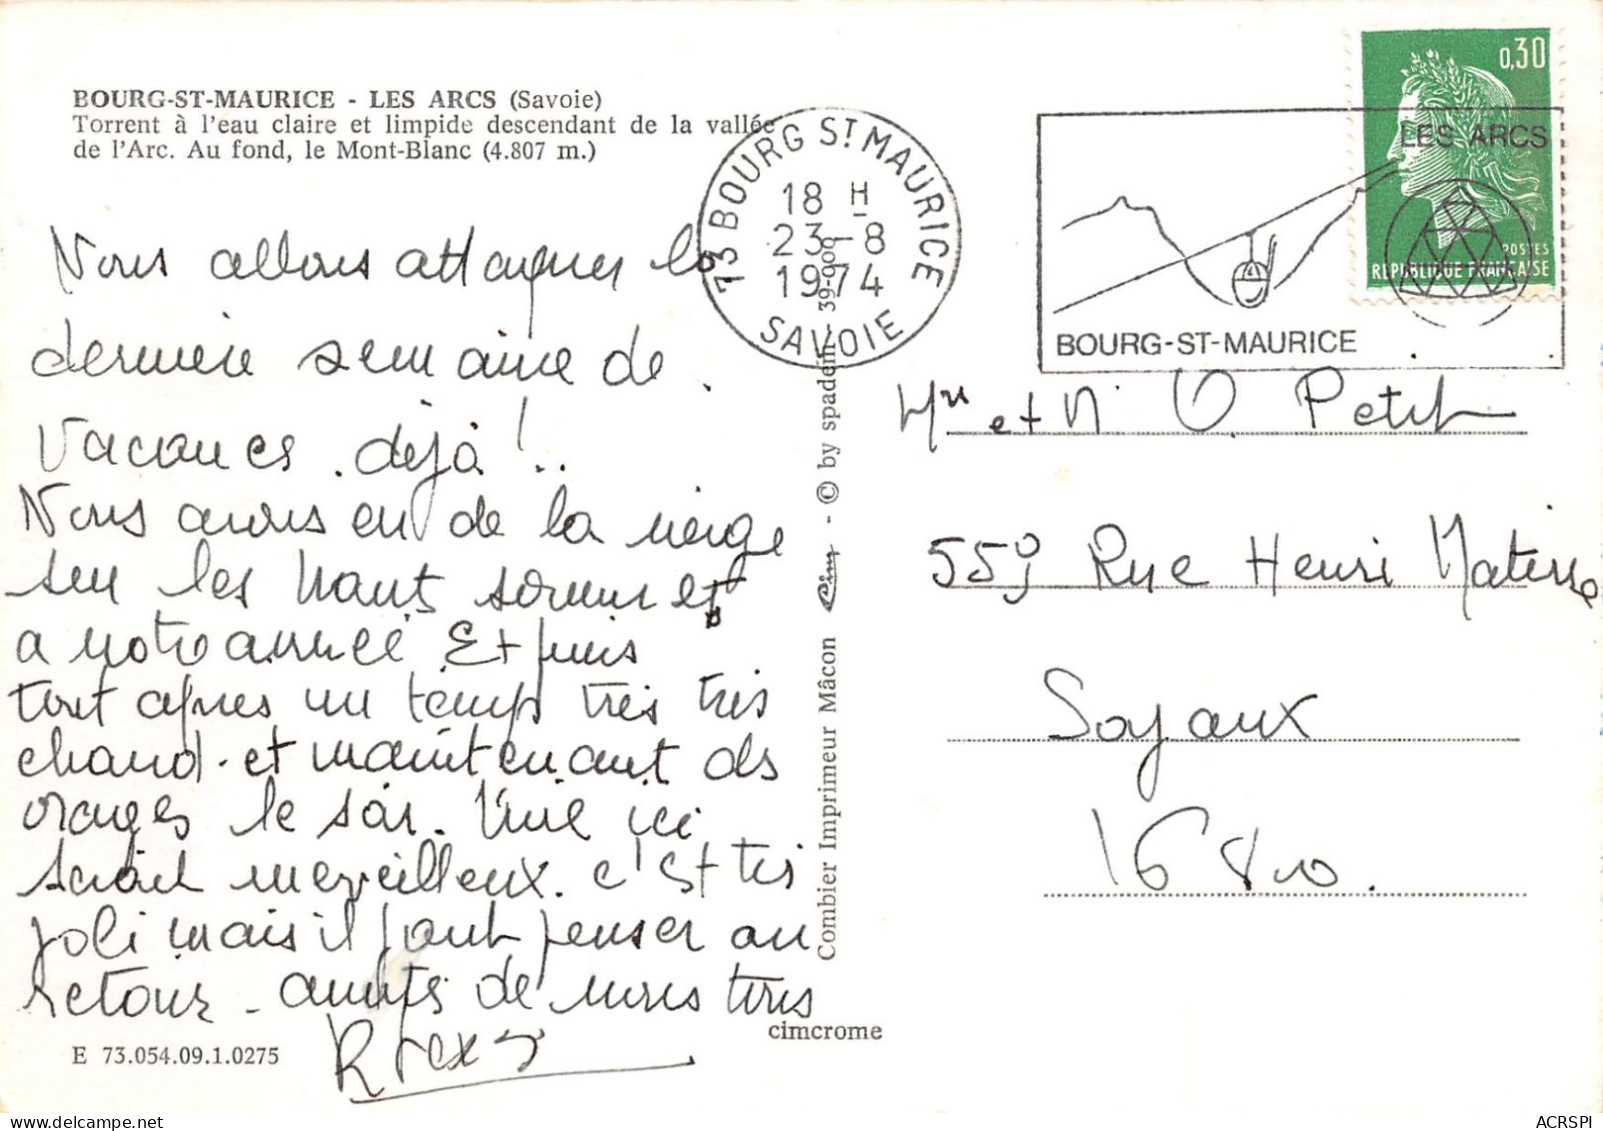 BOURG-ST-MAURICE - LES ARCS (Savoie)
Torrent à l'eau claire et limpide descendant de la vallée
de l'Arc. Au fond, le Mont-Blanc (4.807 m.)
Nous allons attaquer la
dernière semaine de
Vacances. déjà !..
Nous avons eu de la neige
sur les hauts sommets
a notre arrivée Et puis
tout apres un temps très très
chaud. et maintenant des
orages le soir. Vivre ici
serait merveilleux. c'est très
joli mais il faut penser au
retour - amitiés de nous tous
E 73.054.09.1.0275
cimcrome
Combier Imprimeur Mâcon Cim - © by spadem 39-900
73 BOURG ST MAURICE
18 H
23-8
1974
SAVOIE
LES ARCS
BOURG-ST-MAURICE
0,30
POSTES
REPUBLIQUE FRANÇAISE
Mr et M O. Petit
559 Rue Henri Matisse
Soyaux
16800.
ACRSPI